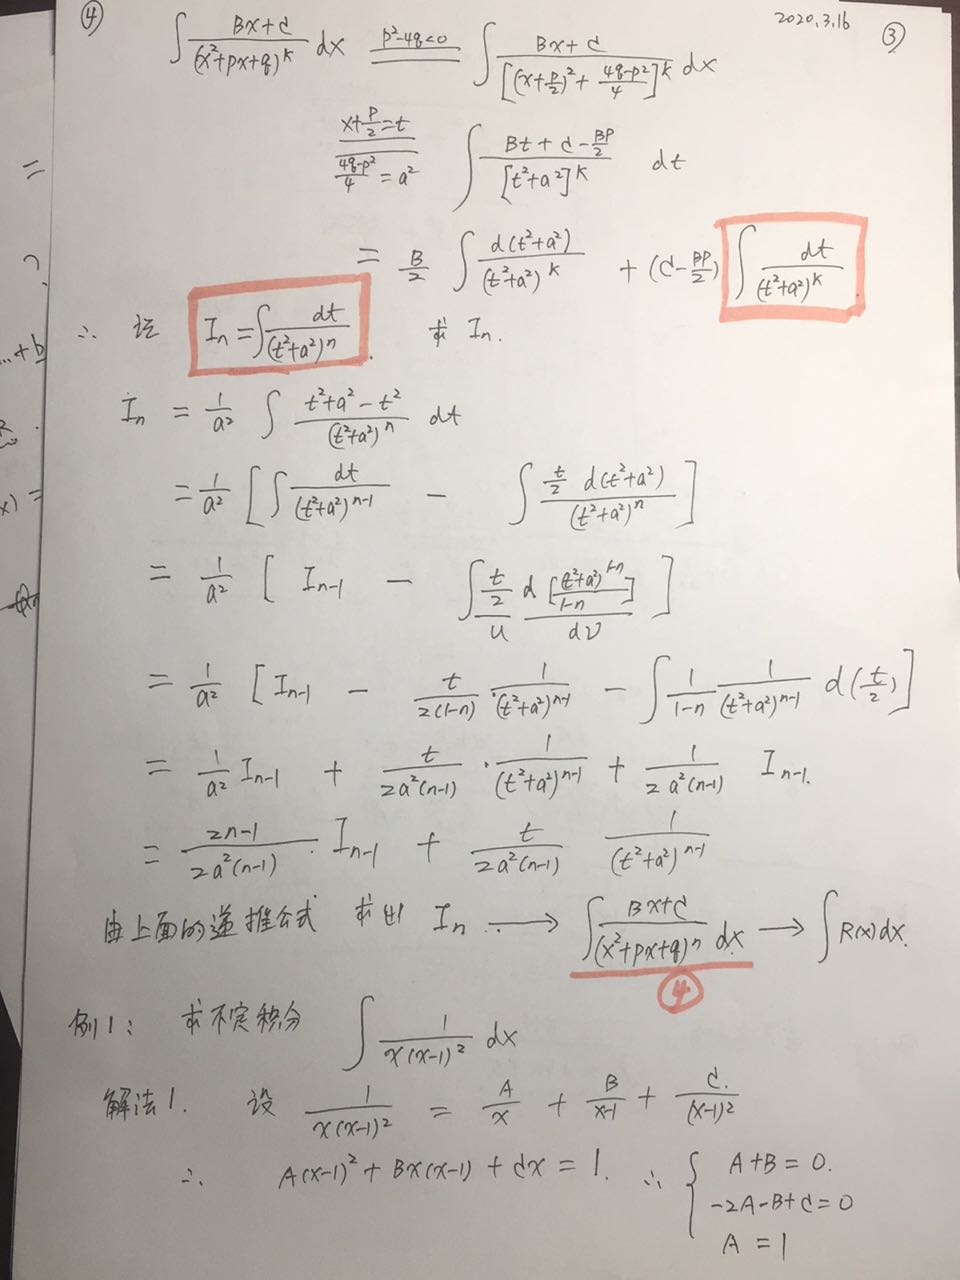 ④ 2020.3.16 ③
∫ (Bx+C)/(x²+px+q)^k dx  =(p²-4q<0)=  ∫ (Bx+C)/[(x+p/2)²+(4q-p²)/4]^k dx
=(x+p/2=t, (4q-p²)/4=a²)=  ∫ (Bt+C-Bp/2)/[t²+a²]^k dt
= B/2 ∫ d(t²+a²)/(t²+a²)^k + (C-Bp/2) ∫ dt/(t²+a²)^k
∴ 记 I_n = ∫ dt/(t²+a²)^n. 求 I_n.
I_n = 1/a² ∫ (t²+a²-t²)/(t²+a²)^n dt
= 1/a² [∫ dt/(t²+a²)^(n-1) - ∫ (t/2 d(t²+a²))/(t²+a²)^n]
= 1/a² [I_(n-1) - ∫ t/2 d[(t²+a²)^(1-n)/(1-n)]]
u dv
= 1/a² [I_(n-1) - t/(2(1-n)) · 1/(t²+a²)^(n-1) - ∫ 1/(1-n) 1/(t²+a²)^(n-1) d(t/2)]
= 1/a² I_(n-1) + t/(2a²(n-1)) · 1/(t²+a²)^(n-1) + 1/(2a²(n-1)) I_(n-1).
= (2n-1)/(2a²(n-1)) · I_(n-1) + t/(2a²(n-1)) 1/(t²+a²)^(n-1)
由上面的递推公式 求出 I_n ⟶ ∫ (Bx+C)/(x²+px+q)^n dx. ⟶ ∫R(x)dx.
④
例1: 求不定积分 ∫ 1/(x(x-1)²) dx
解法1. 设 1/(x(x-1)²) = A/x + B/(x-1) + C/(x-1)²
∴ A(x-1)²+Bx(x-1)+Cx=1. ∴ { A+B=0.
-2A-B+C=0
A=1